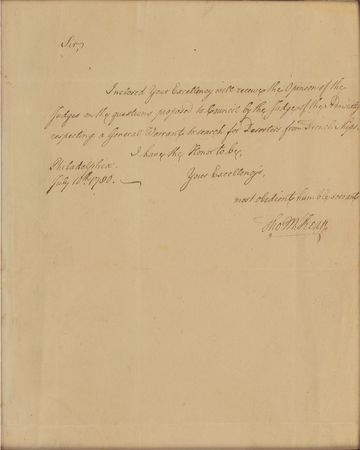 Sir,
Inclosed Your Excellency will receive the Opinion of the
Judges on the questions proposed to Council by the Judge of the Admiralty
respecting a General Warrant to search for Deserters from French Ships.
I have the Honor to be,
Philadelphia
July 10th. 1780.
Your Excellency's
most obedient humble servant
Tho M:Kean